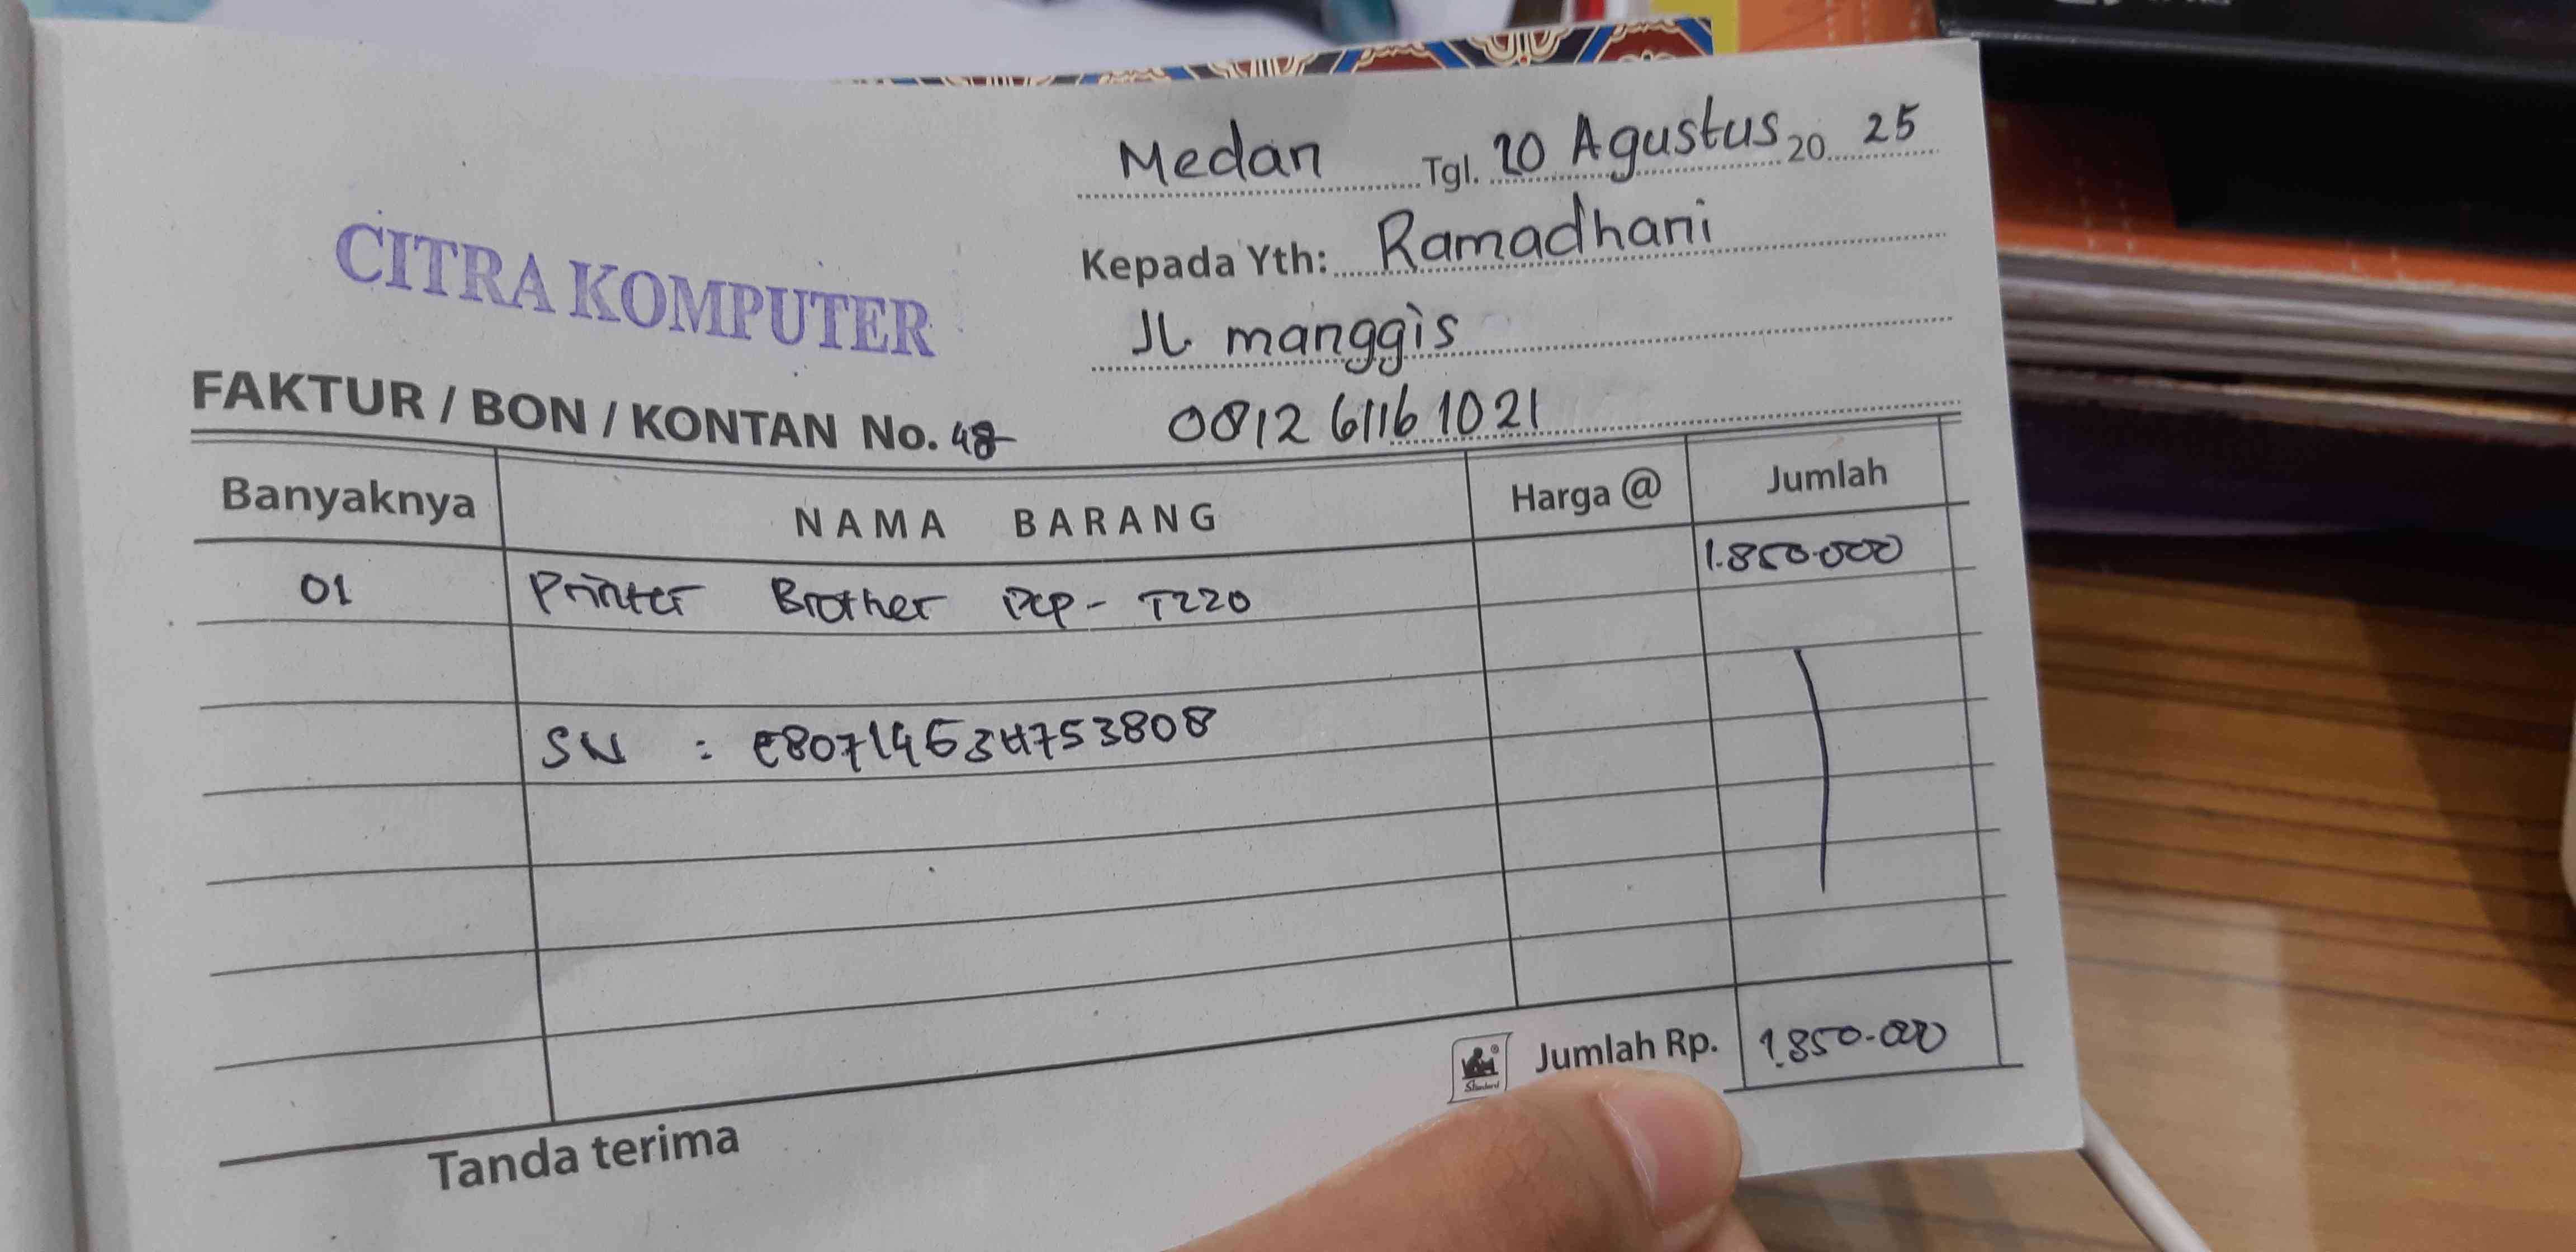 Medan Tgl. 20 Agustus 20 25
CITRA KOMPUTER
Kepada Yth: Ramadhani
JL manggis
0812 6116 1021
FAKTUR / BON / KONTAN No. 48
Banyaknya NAMA BARANG Harga @ Jumlah
01 Printer Brother DCP - T220 1.850.000
SN : E80714634753808
Standard Jumlah Rp. 1.850.000
Tanda terima